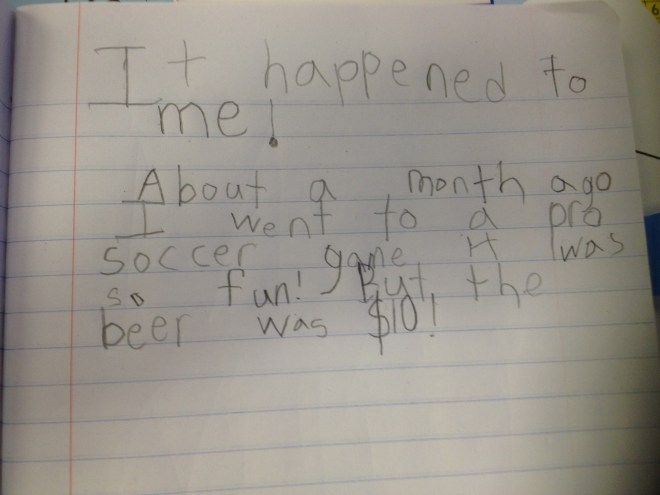 It happened to
me!
About a month ago
I went to a pro
soccer game It was
so fun! But, the
beer was $10!